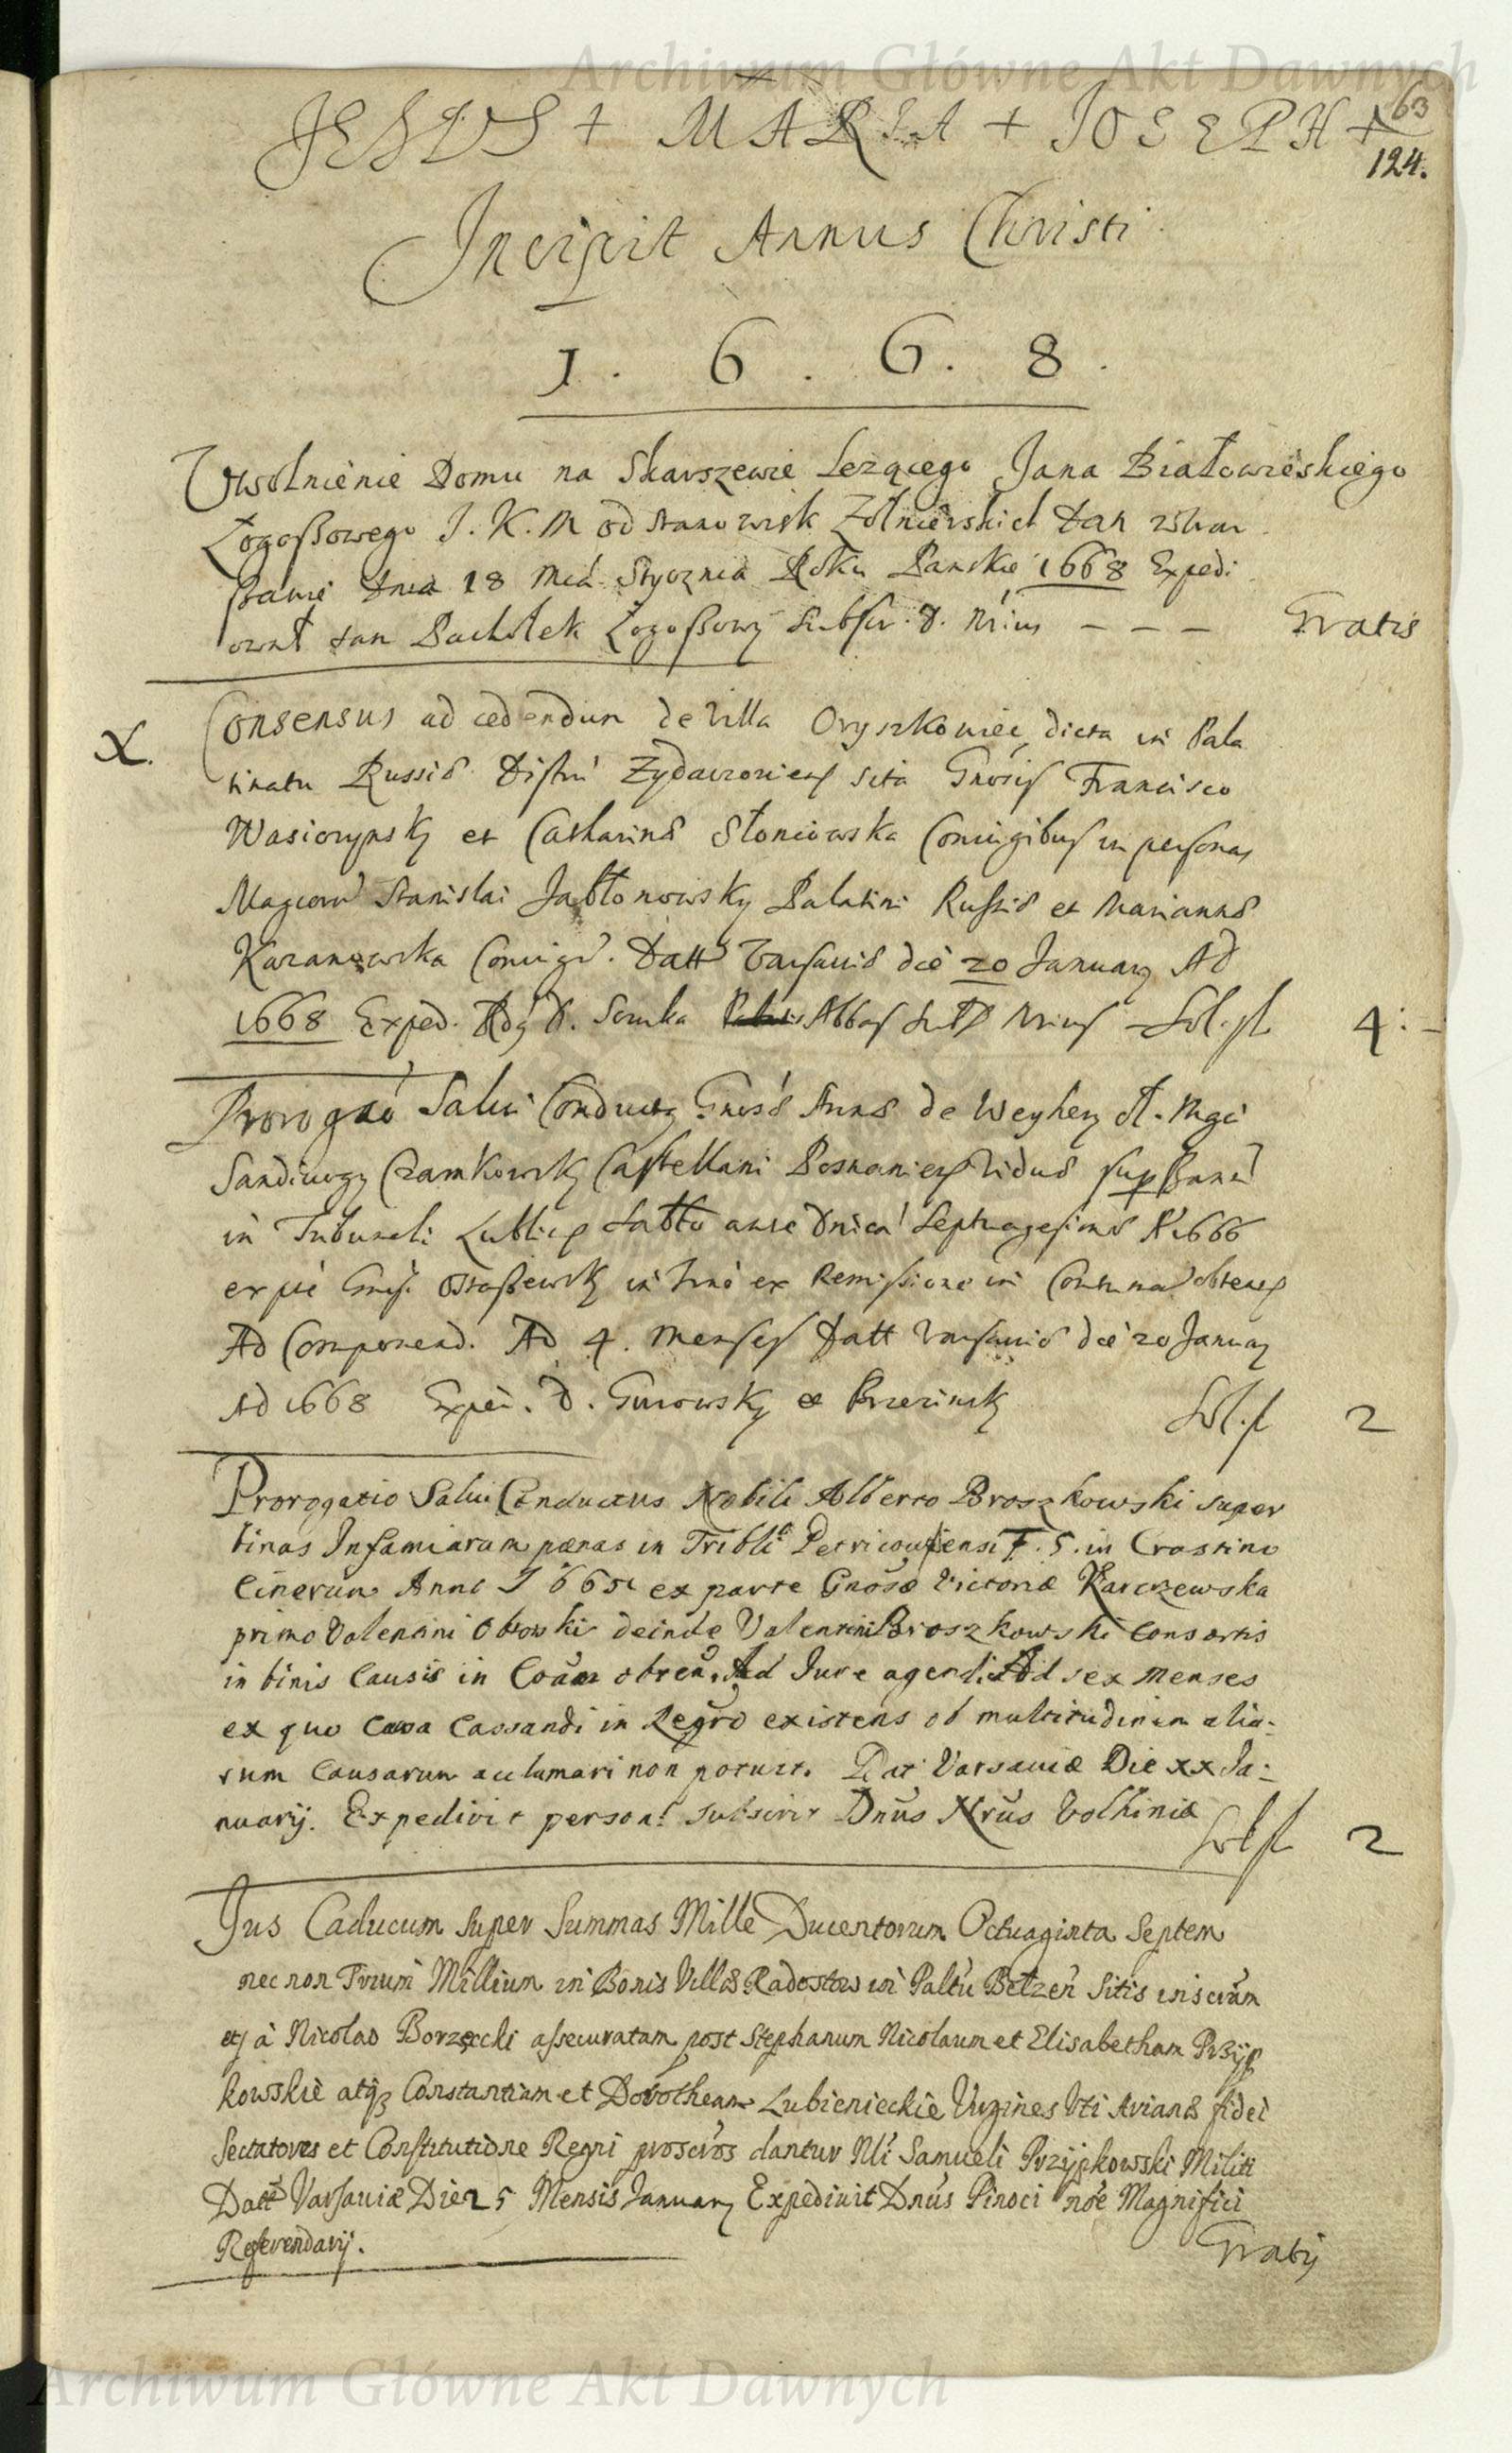 Archiwum Główne Akt Dawnych
63
JESVS + MARIA + JOSEPH +
124.
Incipit Annus Christi
1. 6. 6. 8.
Uwolnienie Domu na Skarszewie Lezącego Jana Białowieskiego
Łogoßowego J. K. M od stanowisk Zołnierskich dan wWar
ßawie dnia 18 Mca Stycznia Roku Panskie 1668 Expedi
ował tan Pachołek Łogoßowy subscr. D. Nrius - - - Gratis
X. Consensus ad cedendum de Villa Oryszkowiec dicta in Pala
tinatu Russiæ Distri Zydaczovien sita Gnosis Francisco
Wasiczynsky et Catharinæ Słoniowska Coniugibus in personas
Magcorum Stanislai Jabłonowsky Palatini Russiæ et Mariannæ
Kazanowska Coniugu. Datt Varsauiæ die 20 January Ad
1668 Exped. Rdg D. Scruka Abbas Nrius Sol. fl 4:-
Prorogao Salui Conductg Gnosæ Annæ de Weyhery M. Mgci
Sandiuogy Czarnkowsky Castellani Posnanien Viduæ sup Banu
in Tribunali Lublin Sabbo ante Dnica Septuagesimæ A 1666
ex pte Gnos. in Trno ex Remissione in Contuma obtent
Ad Componend. Ad 4. Menses Datt Varsauiæ die 20 January
Ad 1668 Exped. D. Gurowsky Sol. fl 2
Prorogatio Salui Conductus Nobili Alberto Broszkowski super
binas Infamiarum pænas in Tribli Petricouiensi F. 5. in Crastino
Cinerum Anno 1665 ex parte Gnosæ Victoriæ Karczewska
primo Valentini deinde Valentini Broszkowski Consortis
in binis Causis in Coām obten. Ad Jure agendi Ad sex Menses
ex quo Causa Cassandi in Regro existens ob multitudinem alia-
rum Causarum acclamari non potuit. Dat Varsauiæ Die xx Ja-
nuarij. Expedivit person: subscrir Dnus Nrus Volhiniæ
Sol fl 2
Jus Caducum super Summas Mille Ducentorum Octuaginta Septem
nec non Trium Millium in Bonis Villæ Radostow in Paltu Bełzen Sitis inscram
etj à Nicolao Borzęcki assecuratam post Stephanum Nicolaum et Elisabetham Przyp
kowskie atq3 Constantiam et Dorotheam Lubienieckie Virgines Uti Arianæ fidei
Sectatores et Constitutione Regni proscros dantur Nli Samueli Przypkowski Militi
Datt Varsauiæ Die 25 Mensis January Expediuit Dnus Pinoci noe Magnifici
Referendarij.
Gratis
Archiwum Główne Akt Dawnych